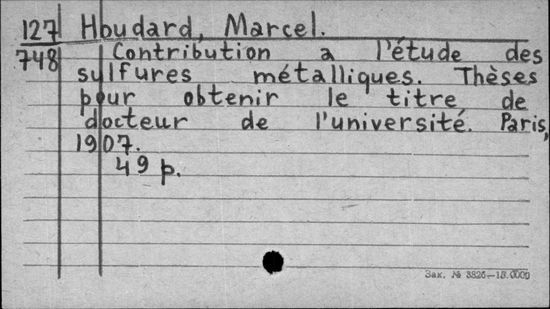 127 Houdard, Marcel.
748 Contribution a l'étude des
sulfures métalliques. Thèses
pour obtenir le titre de
docteur de l'université. Paris,
1907.
49 p.
Зак. № 3826—18.0000